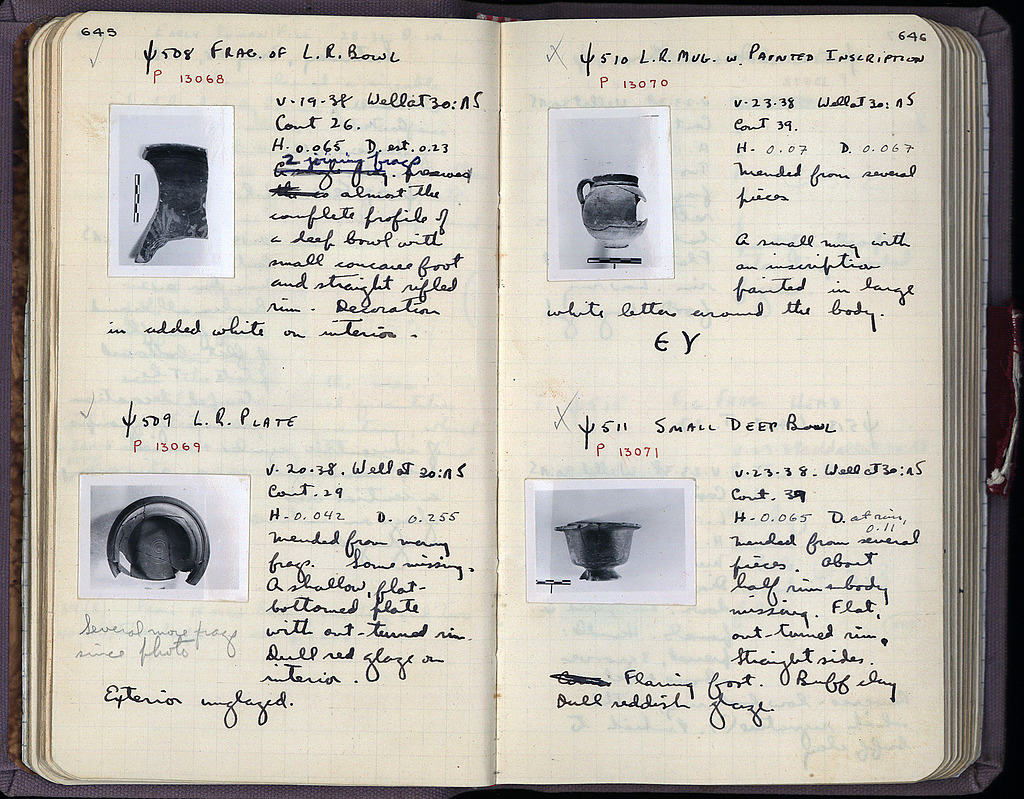 645
ψ508 FRAG. OF L.R. BOWL
P 13068
V-19-38 Well at 30:ΛS
Cont 26.
H. 0.065 D. est. 0.23
2 joining frags
A single frag. preserved
almost the
complete profile of
a deep bowl with
small concave foot
and straight rifled
rim. Decoration
in added white on interior.
ψ509 L.R. PLATE
P 13069
V-20-38. Well at 30:ΛS
Cont. 29
H-0.042 D. 0.255
Mended from many
frags. Some missing.
A shallow, flat-
bottomed plate
with out-turned rim.
Dull red glaze on
interior.
Several more frags
since photo
Exterior unglazed.
646
ψ510 L.R. MUG. W. PAINTED INSCRIPTION
P 13070
V-23-38 Well at 30:ΛS
Cont 39.
H- 0.07 D. 0.067
Mended from several
pieces
A small mug with
an inscription
painted in large
white letters around the body.
ϵ γ
ψ511 SMALL DEEP BOWL
P 13071
V-23-38- Well at 30:ΛS
Cont. 39
H-0.065 D. at rim,
0.11
Mended from several
pieces. About
half rim & body
missing. Flat,
out-turned rim.
Straight sides.
Flaring foot. Buff clay
Dull reddish glaze.